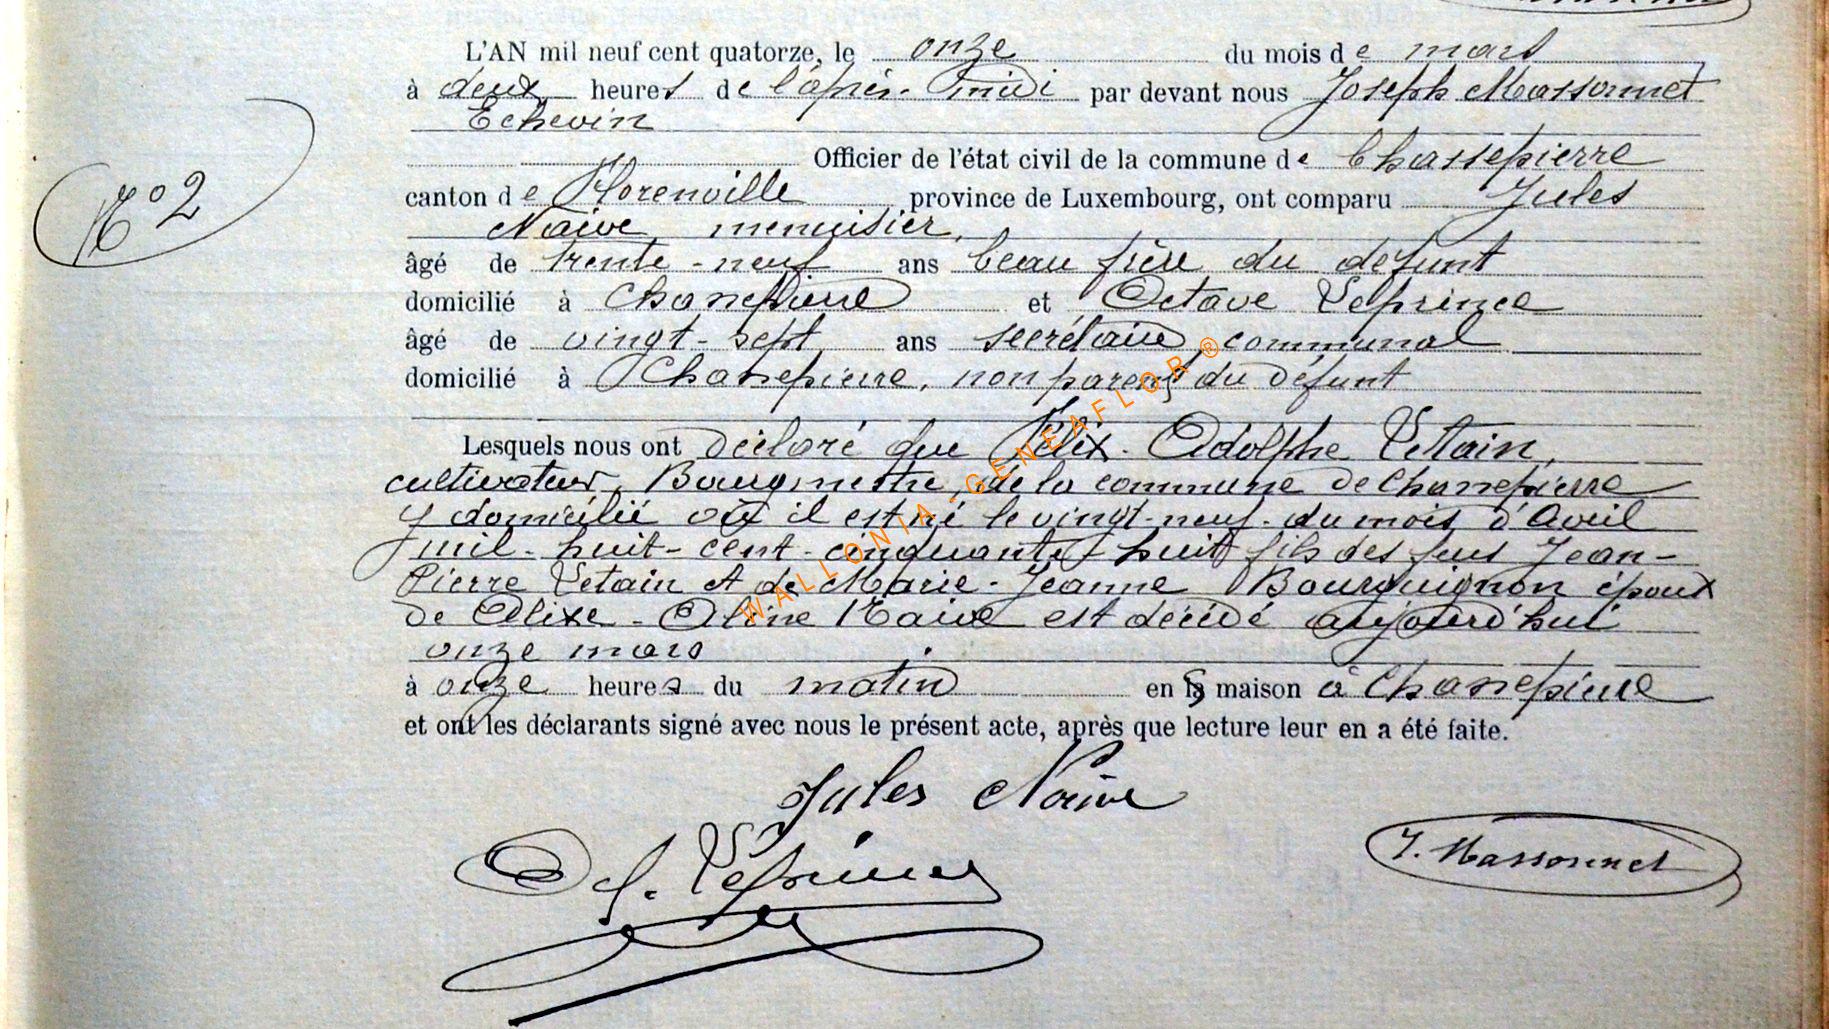 L'AN mil neuf cent quatorze, le onze du mois de mars
à deux heures de l'après-midi par devant nous Joseph Massonnet
Echevin
Officier de l'état civil de la commune de Chassepierre
N° 2
canton de Florenville province de Luxembourg, ont comparu Jules
Naive menuisier,
âgé de trente-neuf ans beau frère du defunt
domicilié à Chassepierre et Octave Leprince
âgé de vingt-sept ans secrétaire communal
domicilié à Chassepierre, non parent du défunt
Lesquels nous ont déclaré que Félix-Adolphe Létain,
cultivateur, Bourgmestre, de la commune de Chassepierre
y domicilié où il est né le vingt-neuf du mois d'Avril
mil-huit-cent-cinquante-huit fils des feus Jean-
Pierre Létain et de Marie-Jeanne Bourguignon époux
de Elixe-Oline Naive est décédé aujourd'hui
onze mars
à onze heures du matin en sa maison à Chassepierre
et ont les déclarants signé avec nous le présent acte, après que lecture leur en a été faite.
Jules Naive
Oct. Léprince
J. Massonnet
WALLONIA-GENEAFLOR®